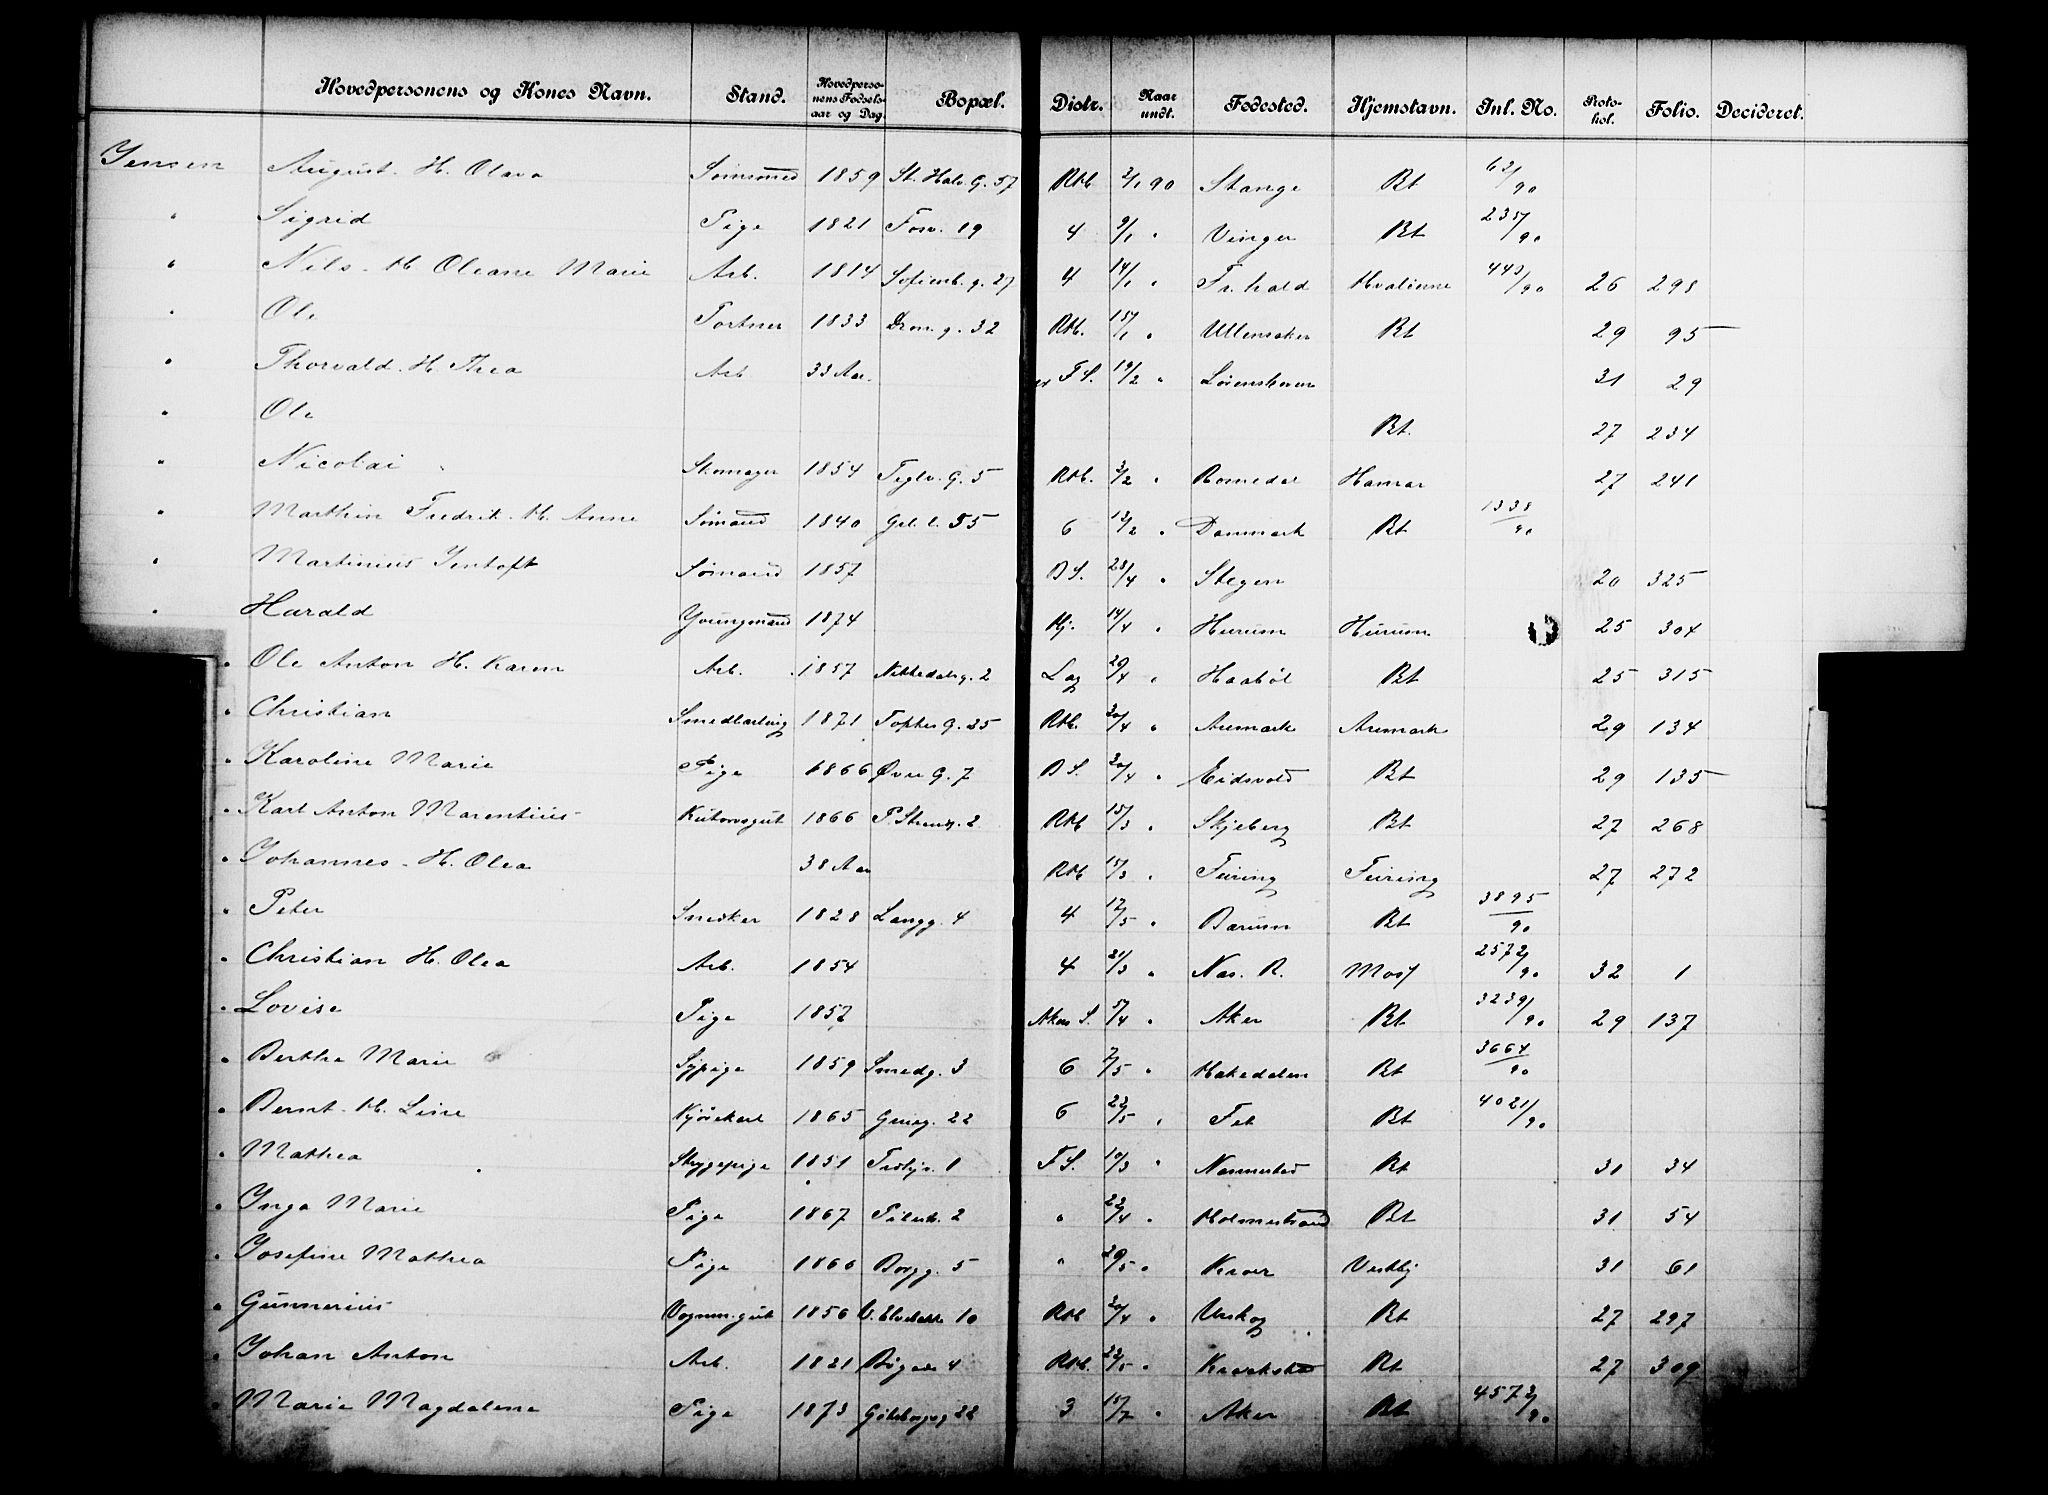 Hovedpersonens og Kones Navn. Stand. Hovedperso-nens Fødsels-aar og Dag. Bopæl. Distr. Naar undt. Fødested. Hjemstavn. Inl. No. Proto-kol. Folio. Decideret.
Jensen August. H. Olava 1859 St. Halv. G. 57 Rkb 2/1 90 Stange Bt 63/90
" Sigrid Pige 1821 Fosv. 19 4 9/1 " Vinger Bt 90
" Nils. H. Oleane Marie Arb. 1814 Sofienb. g. 27 4 14/1 " Fr.hald 90 26 298
" Ole Portner 1833 Dron. g. 32 Rkb. 15/1 " Ullensaker Bt 29 95
" Thorvald. H. Thea Arb 33 Aar. F S. 19/2 " 31 29
" Ole Bt. 27 234
" Nicolai Skomager 1854 Teglv. G. 5 Rkb. 3/2 " Romedal Hamar 27 241
" Marthin Fredrik. H. Anne Sømand 1840 55 6 13/2 " Danmark Bt 1338/90
" Martinius Jentoft Sømand 1857 B S. 28/4 " Stegen 20 325
" Harald Youngmand 1874 Hj. 14/4 " Hurum Hurum 25 304
" Ole Anton H. Karen Arb. 1857 Nittedalsg. 2 Lag 20/4 " Haabøl Bt 25 315
" Christian Smedlærling 1871 Tofthes G. 25 Rkb. 20/4 " Aremark Aremark 29 134
" Karoline Marie Pige 1866 Øvre G. 7 B S. 20/4 " Eidsvold Bt 29 135
" Karl Anton Marentius 1866 P. Strandg. 2 Rkb 15/3 " Skjeberg Bt 27 268
" Johannes. H. Olea 38 Aar Rkb 15/3 " Feiring Feiring 27 272
" Peter Snedker 1828 Langg. 4 4 17/5 " Bærum Bt 3895/90
" Christian H. Olea Arb. 1854 4 21/3 " Nes. R. Moss 2572/90 32 1
" Lovise Pige 1857 Akers S. 5/4 " Aker Bt 3239/90 29 137
" Berthe Marie Sypige 1859 Smedg. 3 6 7/5 " Hakedalen Bt 3664/90
" Bernt. H. Line Kjørekarl 1865 22 6 22/5 " Fet Bt 4021/90
" Mathea Strygepige 1851 1 F S. 10/3 " Bt 31 34
" Inga Marie Pige 1867 Pilestr. 2 " 22/4 " Holmestrand Bt 31 54
" Josefine Mathea Pige 1866 Borgg. 5 " 29/5 " Kroer Vestby 31 61
" Gunnerius Vognm.gut 1856 V. Elvebakke 10 Rkb 20/4 " Urskog Bt 27 297
" Johan Anton Arb. 1821 4 Rkb. 22/5 " Bt 27 309
" Marie Magdalene Pige 1873 Gøteborgsg 22 3 15/7 " Aker Bt 4573/90